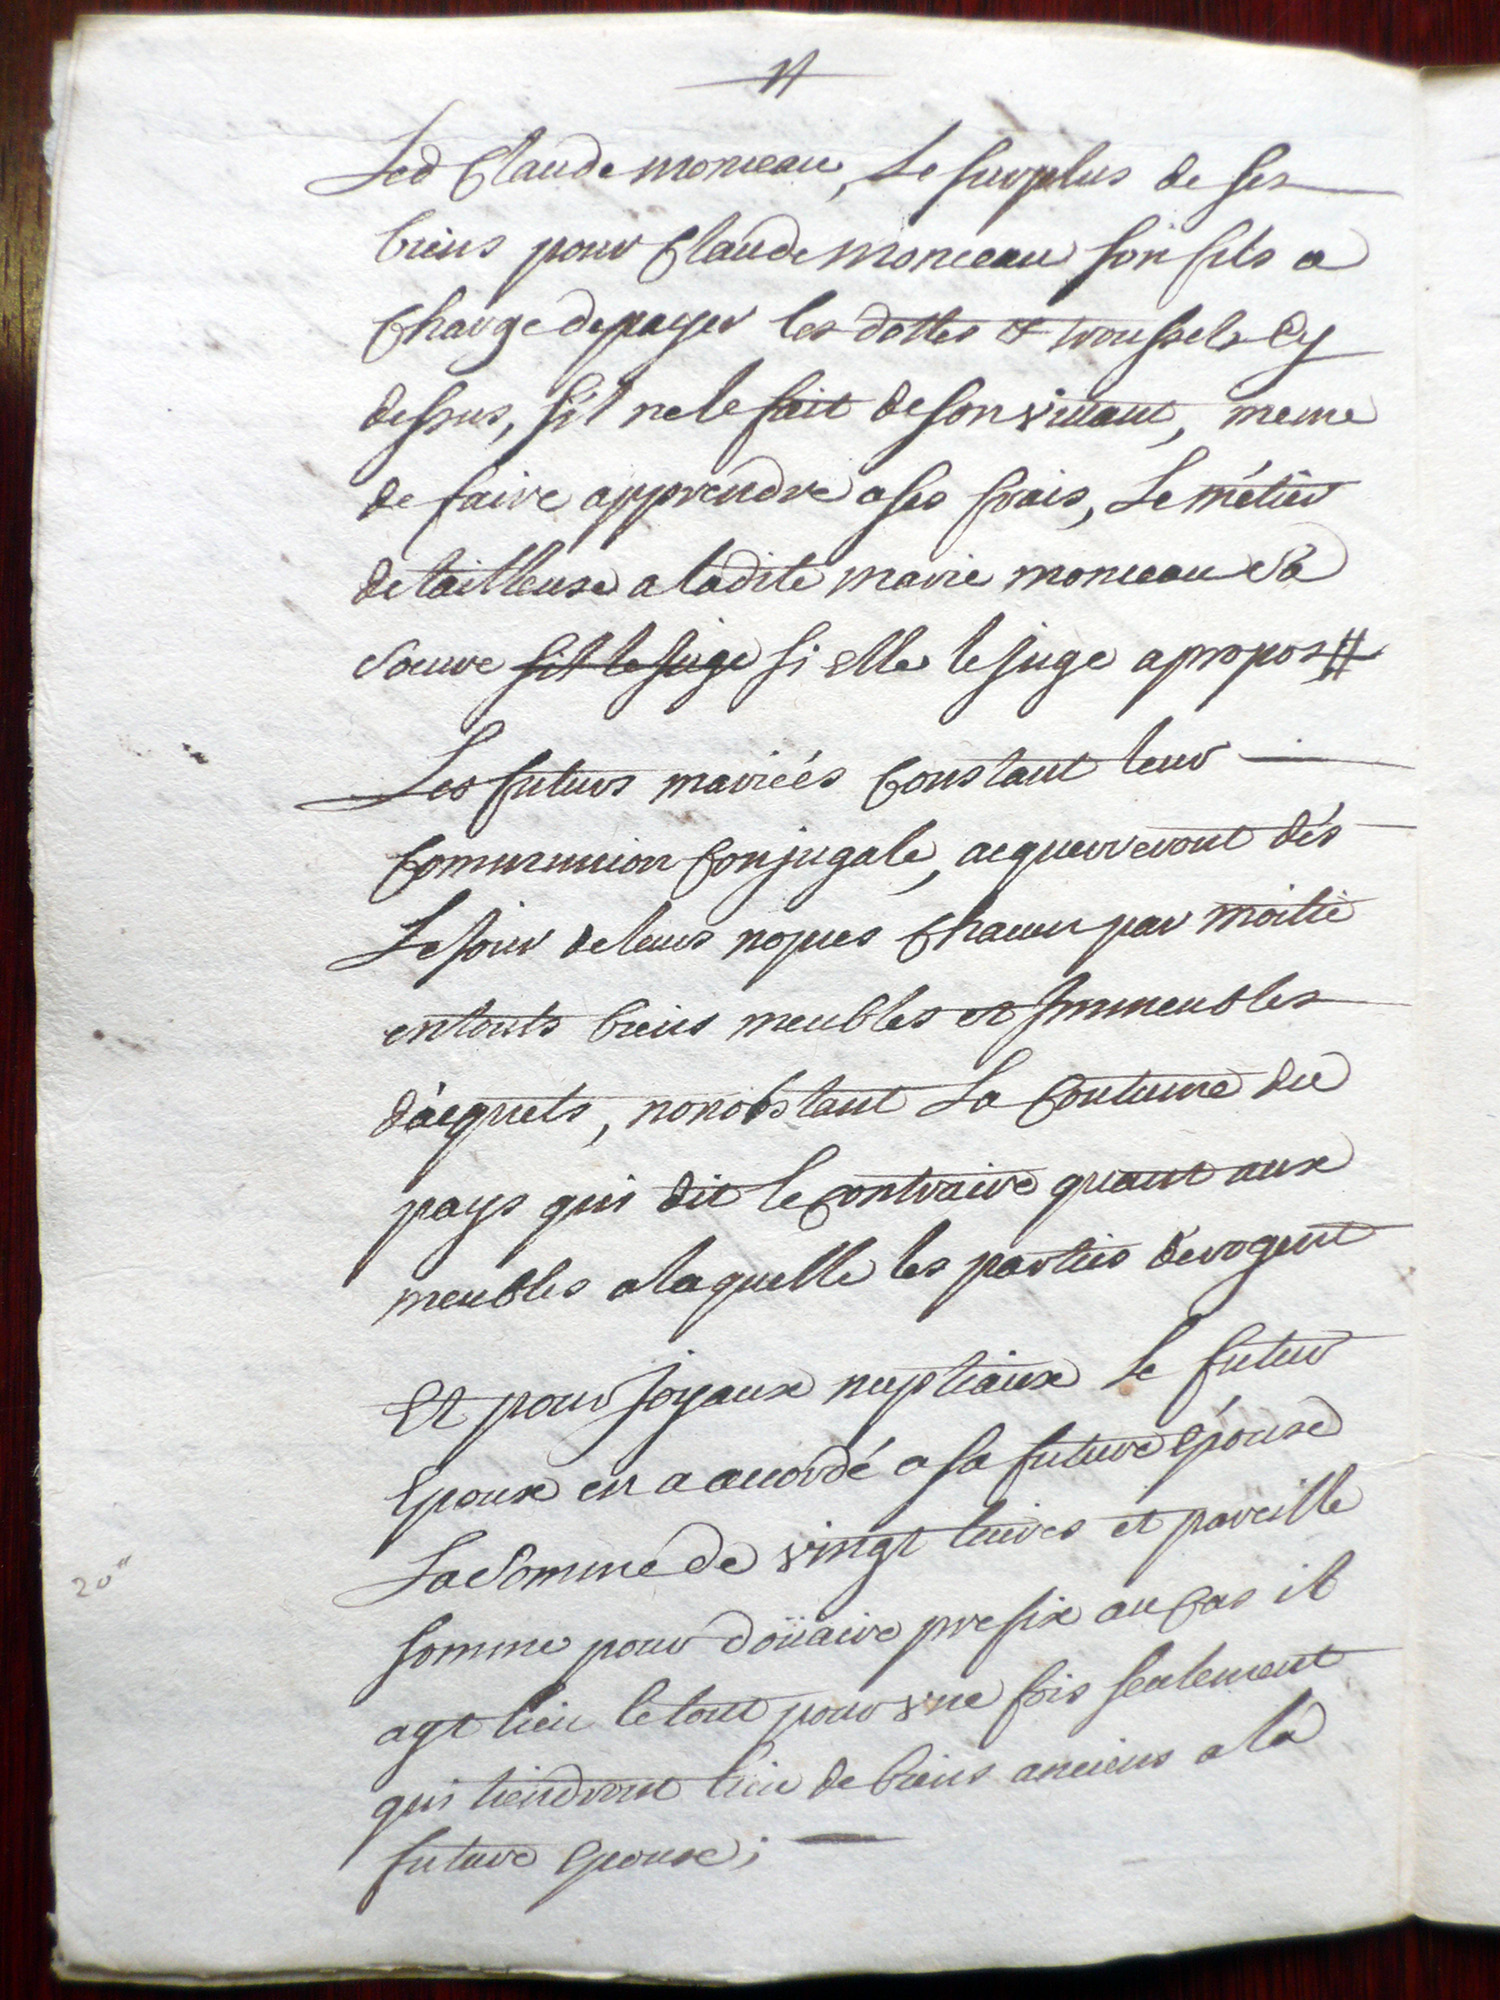 Led Claude monceau, Le surplus de ses
biens pour Claude monceau son fils a
Charge de payer les dottes et troussels Cy
dessus, s'il ne le fait de son vivant, meme
de faire apprendre a ses frais, Le métier
de tailleuse a ladite marie monceau Sa
Soeure sil le juge si elle le juge apropos #
Les futurs mariéés Constant leur
Communion Conjugale, acquerreront dés
Le jour de leurs nopces Chacun par moitié
en touts biens meubles et Immeubles
d'acquets, nonobstant La Coutume du
pays qui dit le Contraire quant aux
meubles a laquelle les parties derogent
Et pour Joyaux nuptiaux le futur
Epoux en a accordé a sa future Epouse
La Somme de vingt livres et pareille
20"
somme pour doüaire prefix au Cas il
ayt lieu le tout pour vne fois seulement
qui tiendront lieu de biens anciens a la
future Epouse;